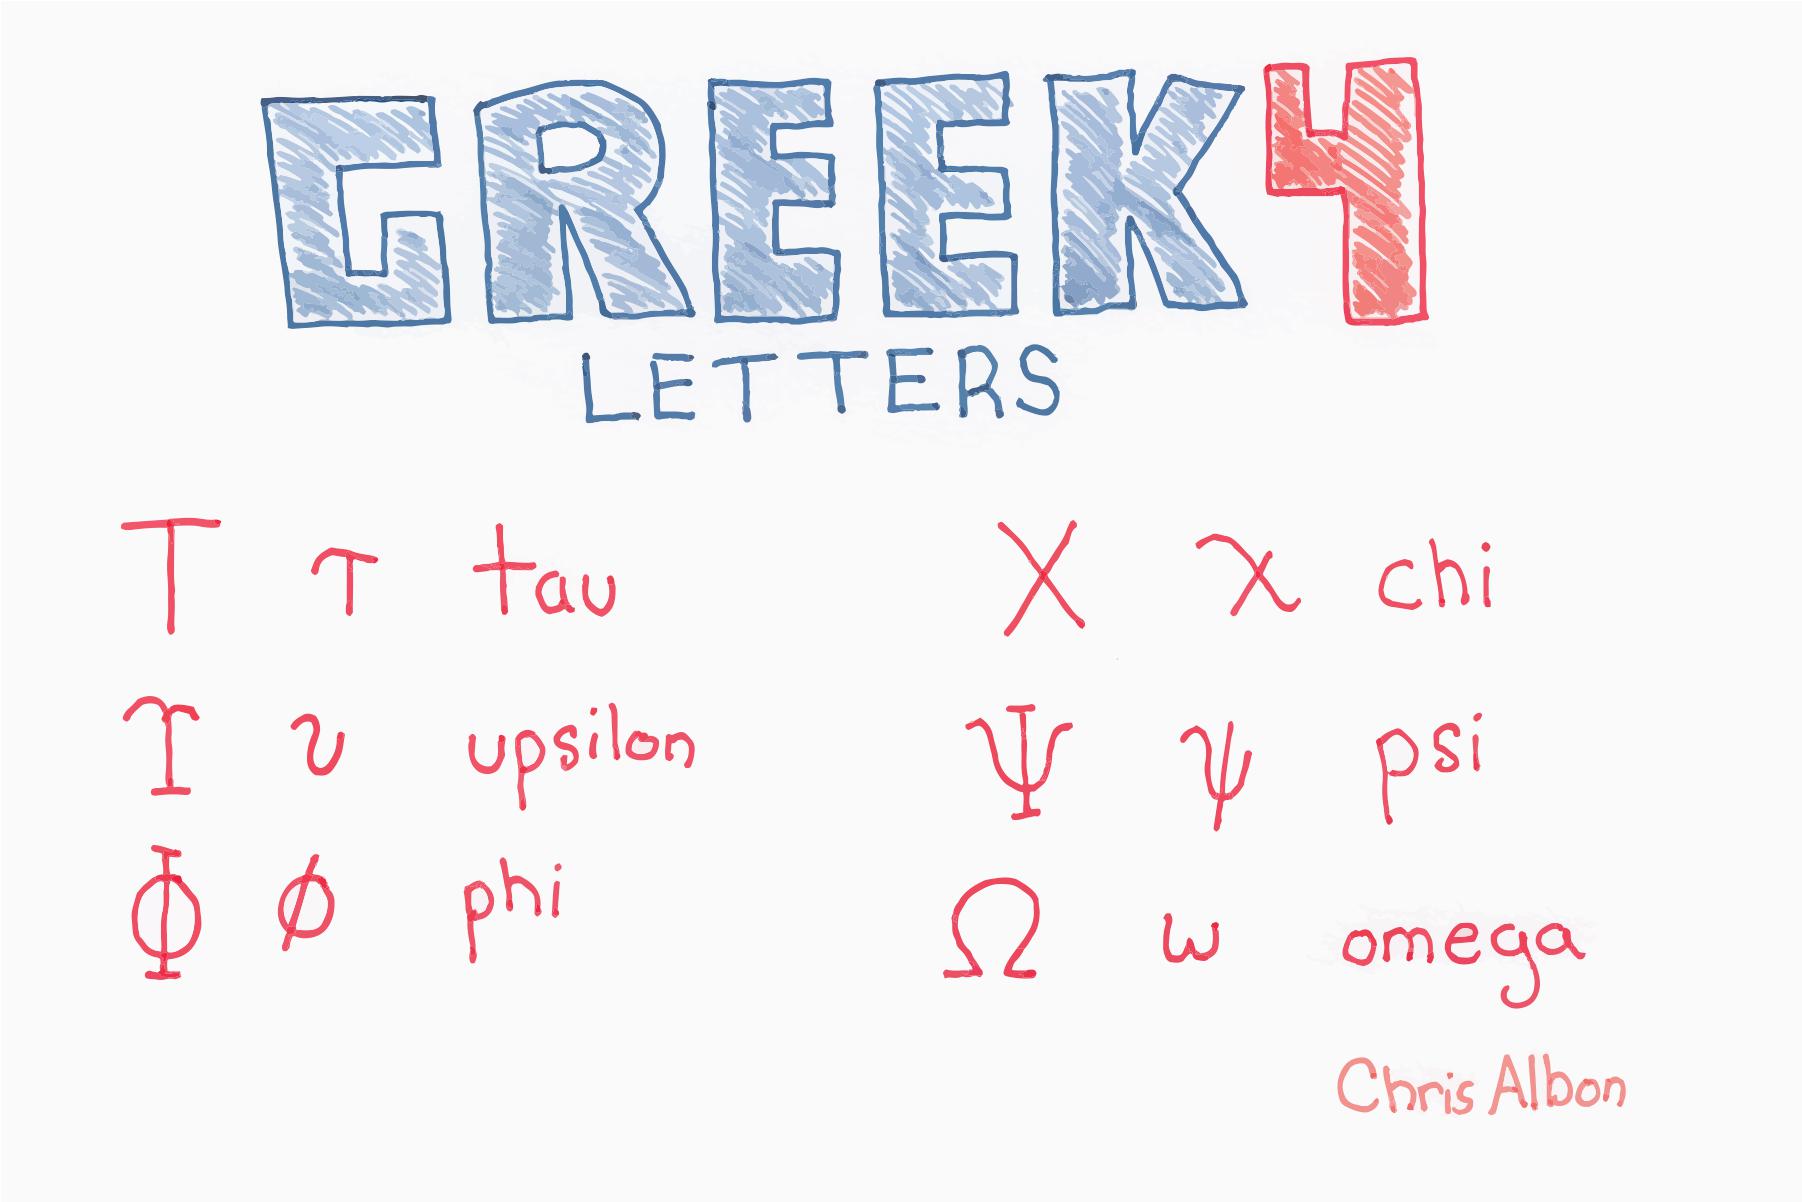 GREEK 4
LETTERS
Τ τ tau
ϒ υ upsilon
Φ ϕ phi
Χ χ chi
Ψ ψ psi
Ω ω omega
Chris Albon